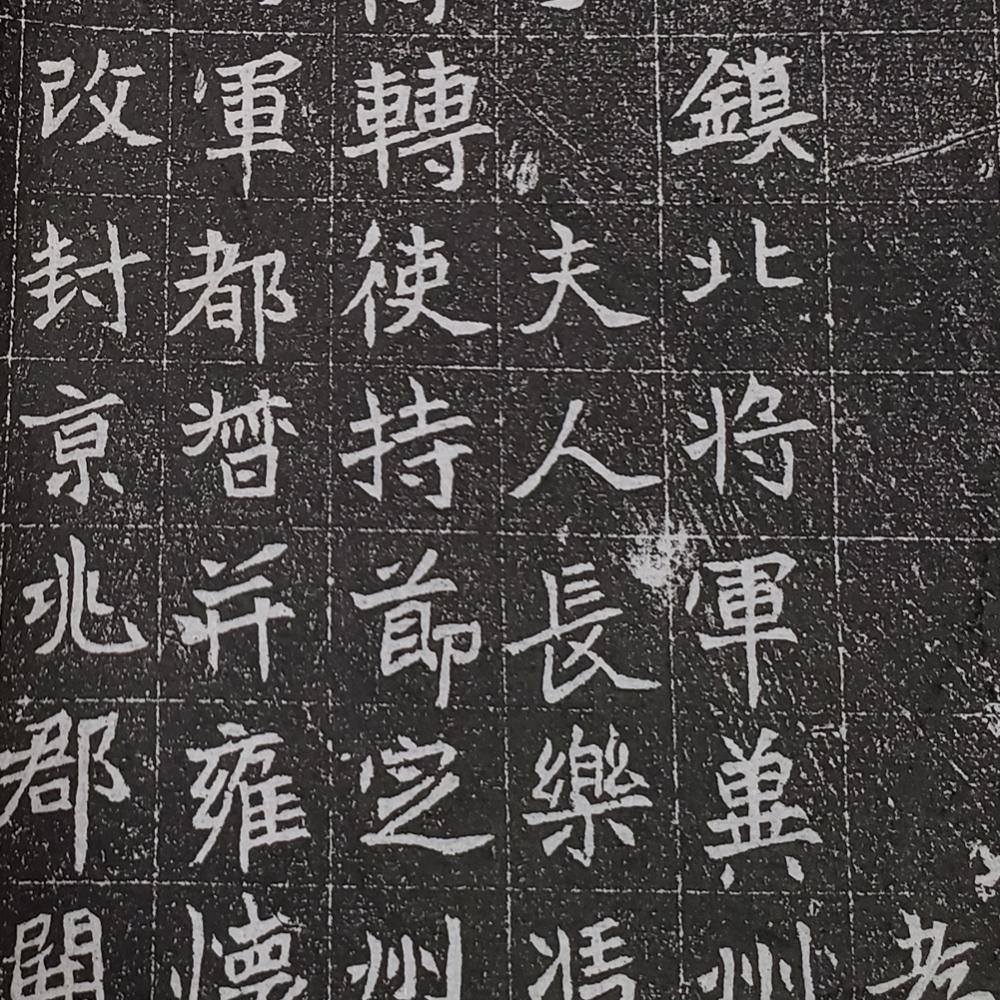 鎮北将軍冀州
夫人長樂馮
轉使持節定州
軍都督并雍懷
改封京兆郡開